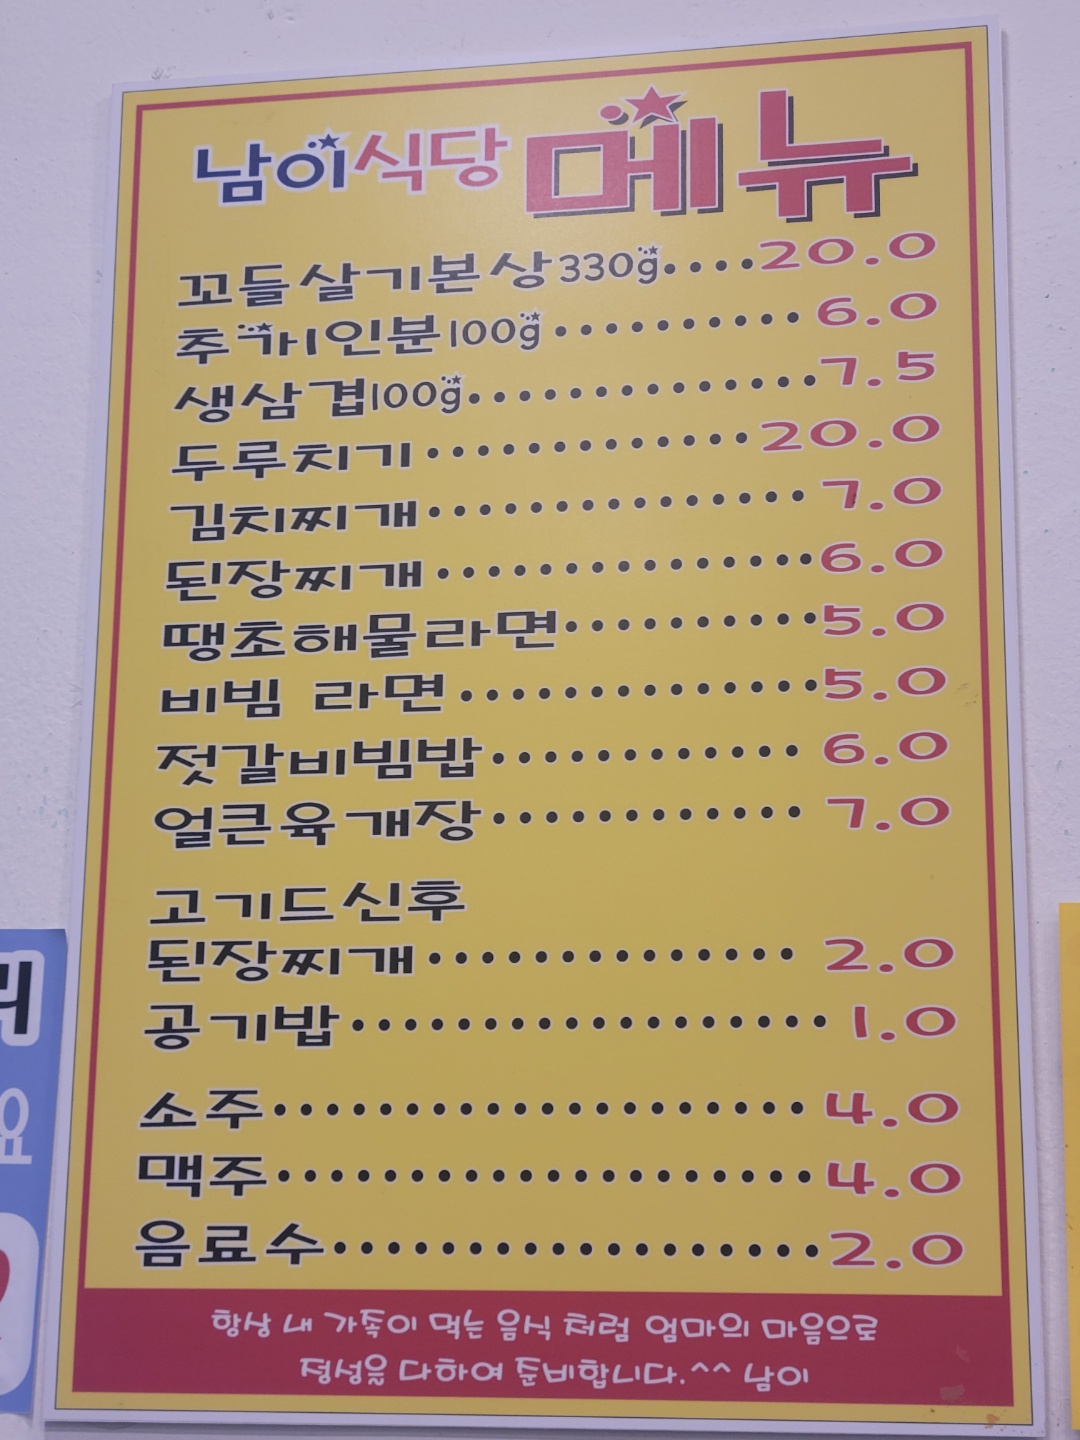 남이식당 메뉴
꼬들살기본상330g....20.0
추가1인분100g..........6.0
생삼겹100g..............7.5
두루치기.............20.0
김치찌개...............7.0
된장찌개...............6.0
땡초해물라면..........5.0
비빔 라면..............5.0
젓갈비빔밥............6.0
얼큰육개장............7.0
고기드신후
된장찌개..............2.0
공기밥..................1.0
소주....................4.0
맥주....................4.0
음료수..................2.0
항상 내 가족이 먹는 음식 처럼 엄마의 마음으로
정성을 다하여 준비합니다.^^ 남이
요